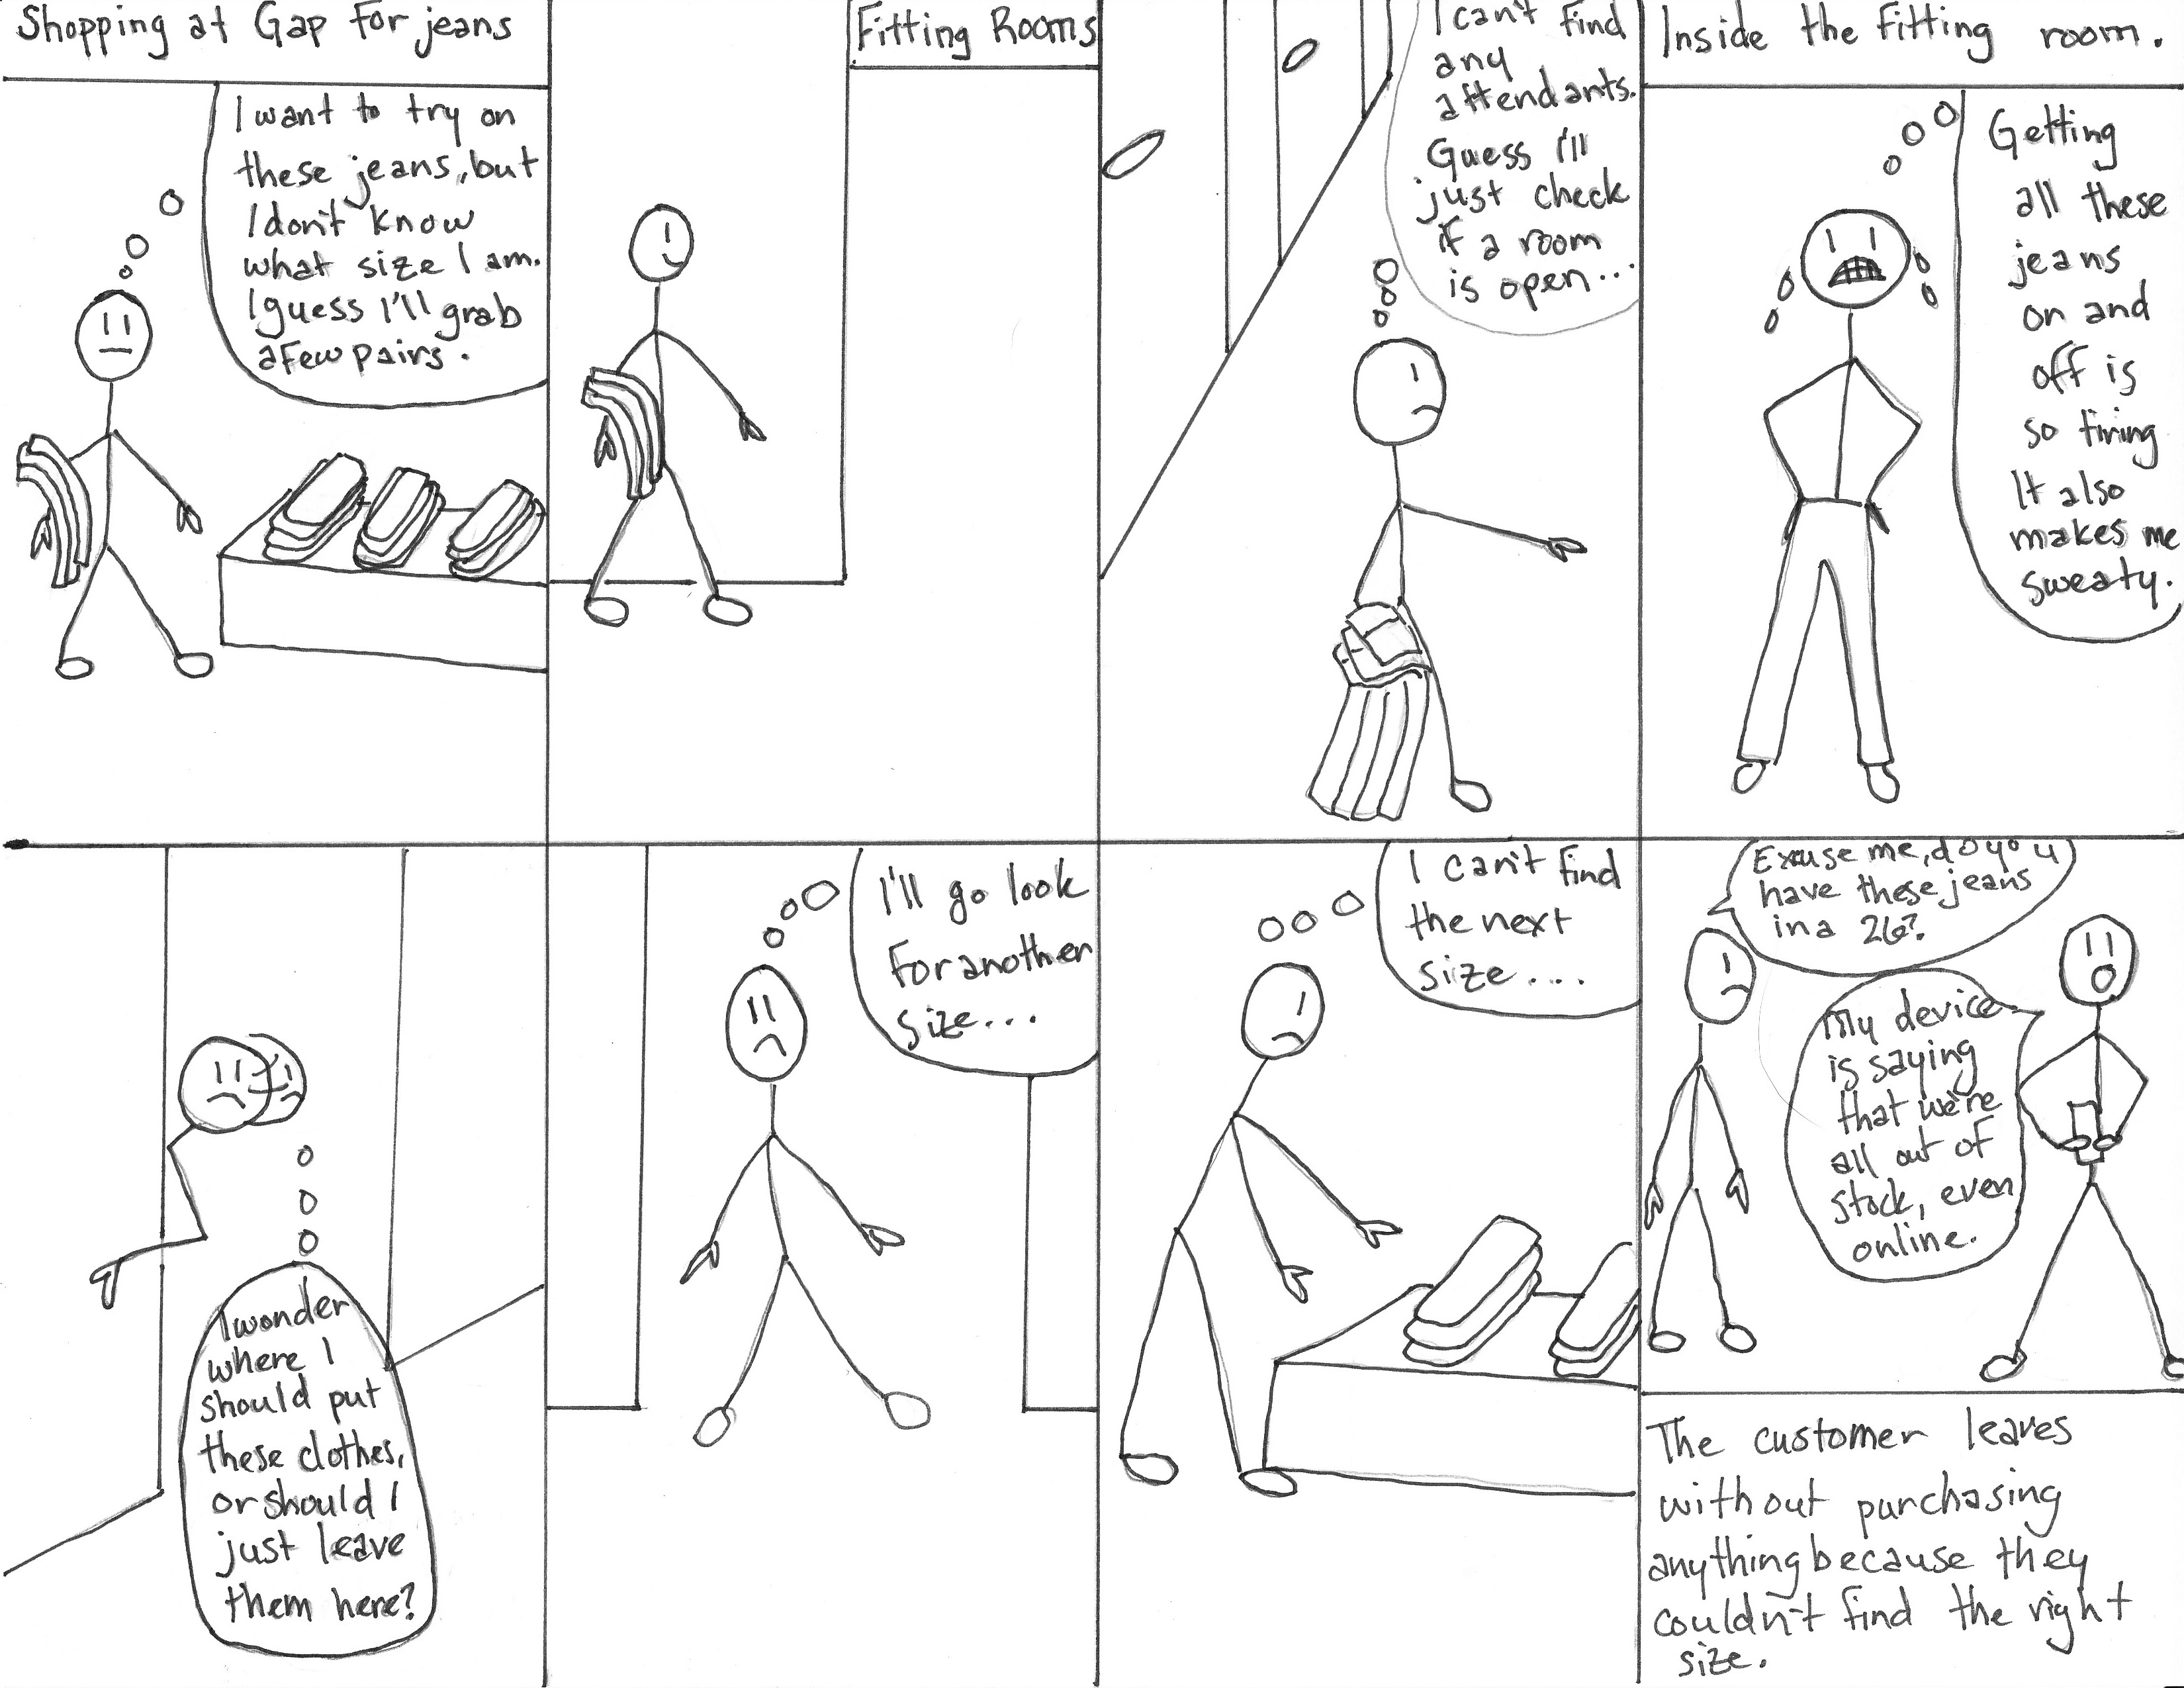 Shopping at Gap for jeans
I want to try on
these jeans, but
I don't know
what size I am.
I guess I'll grab
a few pairs.
Fitting Rooms
I can't find
any
attendants.
Guess I'll
just check
if a room
is open...
Inside the fitting room.
Getting
all these
jeans
on and
off is
so tiring
It also
makes me
sweaty.
I wonder
where I
should put
these clothes,
or should I
just leave
them here?
I'll go look
for another
size...
I can't find
the next
size....
Excuse me, do you
have these jeans
in a 26?
My device
is saying
that we're
all out of
stock, even
online.
The customer leaves
without purchasing
anything because they
couldn't find the right
size.